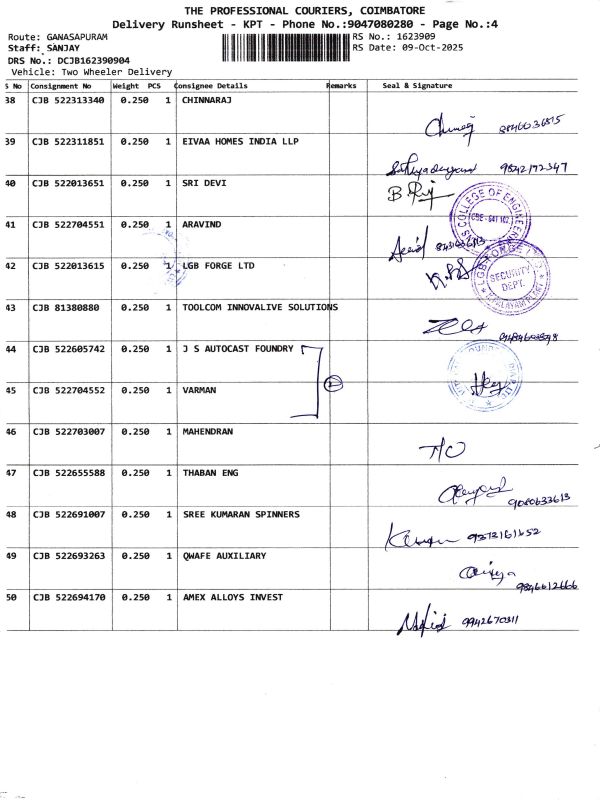 THE PROFESSIONAL COURIERS, COIMBATORE
Delivery Runsheet - KPT - Phone No.:9047080280 - Page No.:4
Route: GANASAPURAM RS No.: 1623909
Staff: SANJAY RS Date: 09-Oct-2025
DRS No.: DCJB162390904
Vehicle: Two Wheeler Delivery
S No Consignment No Weight PCS Consignee Details Remarks Seal & Signature
38 CJB 522313340 0.250 1 CHINNARAJ
39 CJB 522311851 0.250 1 EIVAA HOMES INDIA LLP
9842172347
40 CJB 522013651 0.250 1 SRI DEVI
COLLEGE OF ENGINEE
41 CJB 522704551 0.250 1 ARAVIND
42 CJB 522013615 0.250 1 LGB FORGE LTD
LGB FORGE
SECURITY
DEPT.
43 CJB 81380880 0.250 1 TOOLCOM INNOVALIVE SOLUTIONS
44 CJB 522605742 0.250 1 J S AUTOCAST FOUNDRY
2
45 CJB 522704552 0.250 1 VARMAN
46 CJB 522703007 0.250 1 MAHENDRAN
T/O
47 CJB 522655588 0.250 1 THABAN ENG
9080633613
48 CJB 522691007 0.250 1 SREE KUMARAN SPINNERS
9373161652
49 CJB 522693263 0.250 1 QWAFE AUXILIARY
9846612666
50 CJB 522694170 0.250 1 AMEX ALLOYS INVEST
9942670311